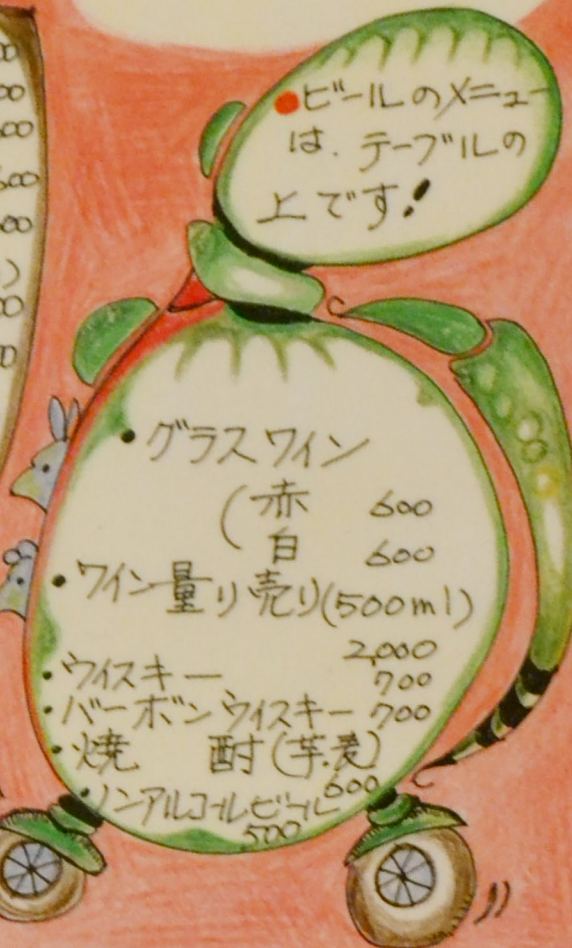 ●ビールのメニュー
は、テーブルの
上です!
・グラスワイン
(赤 600
白 600
・ワイン量り売り(500ml)
2,000
・ウィスキー 700
・バーボンウィスキー 700
・焼 酎(芋.麦)
600
・ノンアルコールビール
500